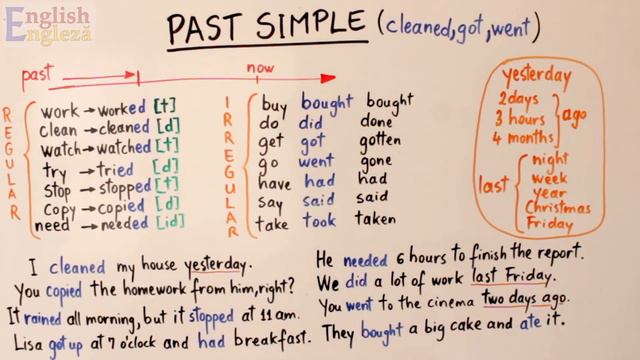 English
Engleză
PAST SIMPLE (cleaned, got, went)
past
now
REGULAR
work → worked [t]
clean → cleaned [d]
watch → watched [t]
try → tried [d]
stop → stopped [t]
copy → copied [d]
need → needed [id]
IRREGULAR
buy bought bought
do did done
get got gotten
go went gone
have had had
say said said
take took taken
yesterday
2 days
3 hours
4 months
ago
last
night
week
year
Christmas
Friday
I cleaned my house yesterday.
You copied the homework from him, right?
It rained all morning, but it stopped at 11 am.
Lisa got up at 7 o'clock and had breakfast.
He needed 6 hours to finish the report.
We did a lot of work last Friday.
You went to the cinema two days ago.
They bought a big cake and ate it.